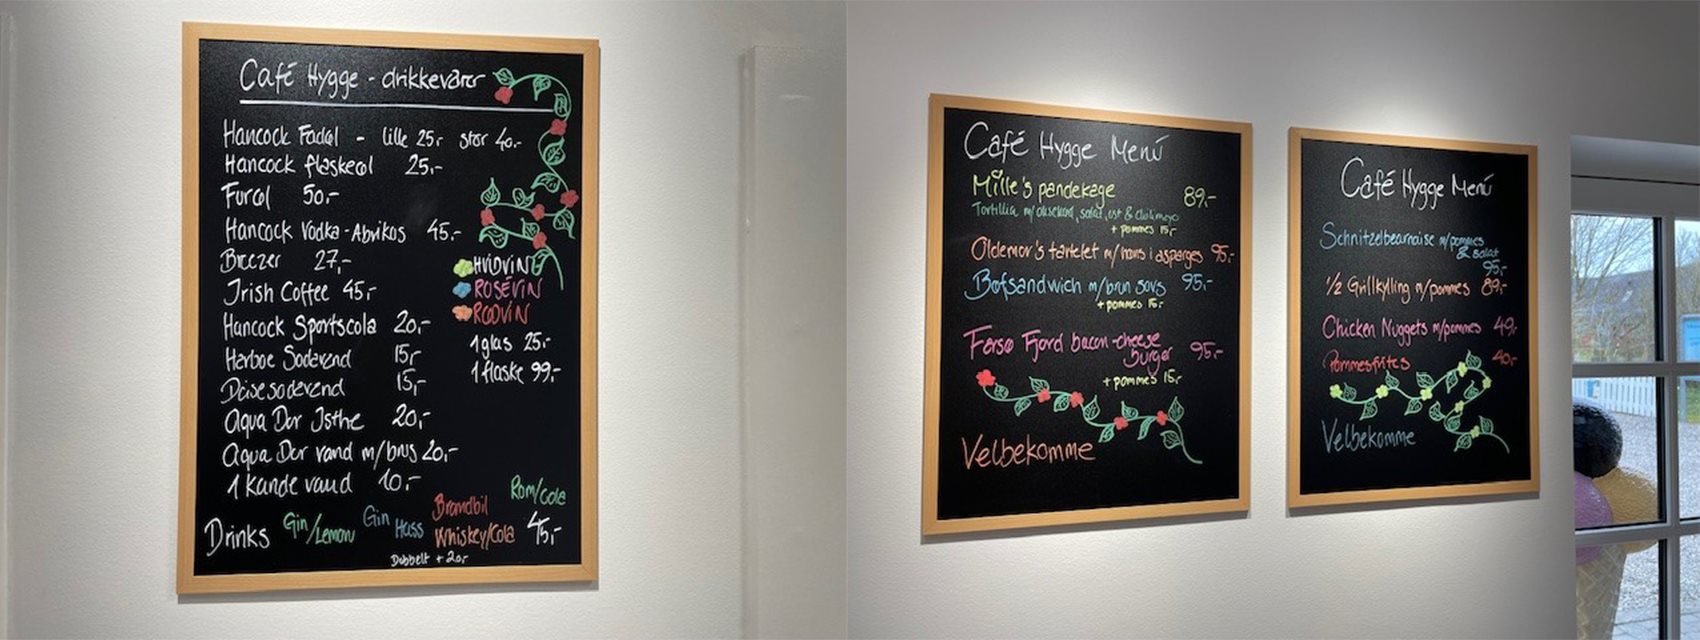 Café Hygge - drikkevarer
Hancock Fadøl - lille 25,- stor 40,-
Hancock flaskeøl 25,-
Furøl 50,-
Hancock Vodka-Abrikos 45,-
Breezer 27,-
Irish Coffee 45,-
Hancock Sportscola 20,-
Harboe Sodavand 15,-
Dåsesodavand 15,-
Aqua Dor Isthe 20,-
Aqua Dor vand m/brus 20,-
1 kande vand 10,-
HVIDVIN
ROSÉVIN
RØDVIN
1 glas 25,-
1 flaske 99,-
Drinks Gin/Lemon Gin Hass Brandbil Whiskey/Cola Rom/Cola 45,-
Dobbelt + 20,-
Café Hygge Menú
Mille's pandekage 89,-
Tortilla m/oksekød, salat, ost & chilimayo
+ pommes 15,-
Oldemor's tartelet m/høns i asparges 95,-
Bøfsandwich m/brun sovs 95,-
+ pommes 15,-
Fursø Fjord bacon-cheese
burger 95,-
+ pommes 15,-
Velbekomme
Café Hygge Menú
Schnitzelbearnaise m/pommes
& salat
95,-
1/2 Grillkylling m/pommes 89,-
Chicken Nuggets m/pommes 49,-
Pommesfrites 40,-
Velbekomme